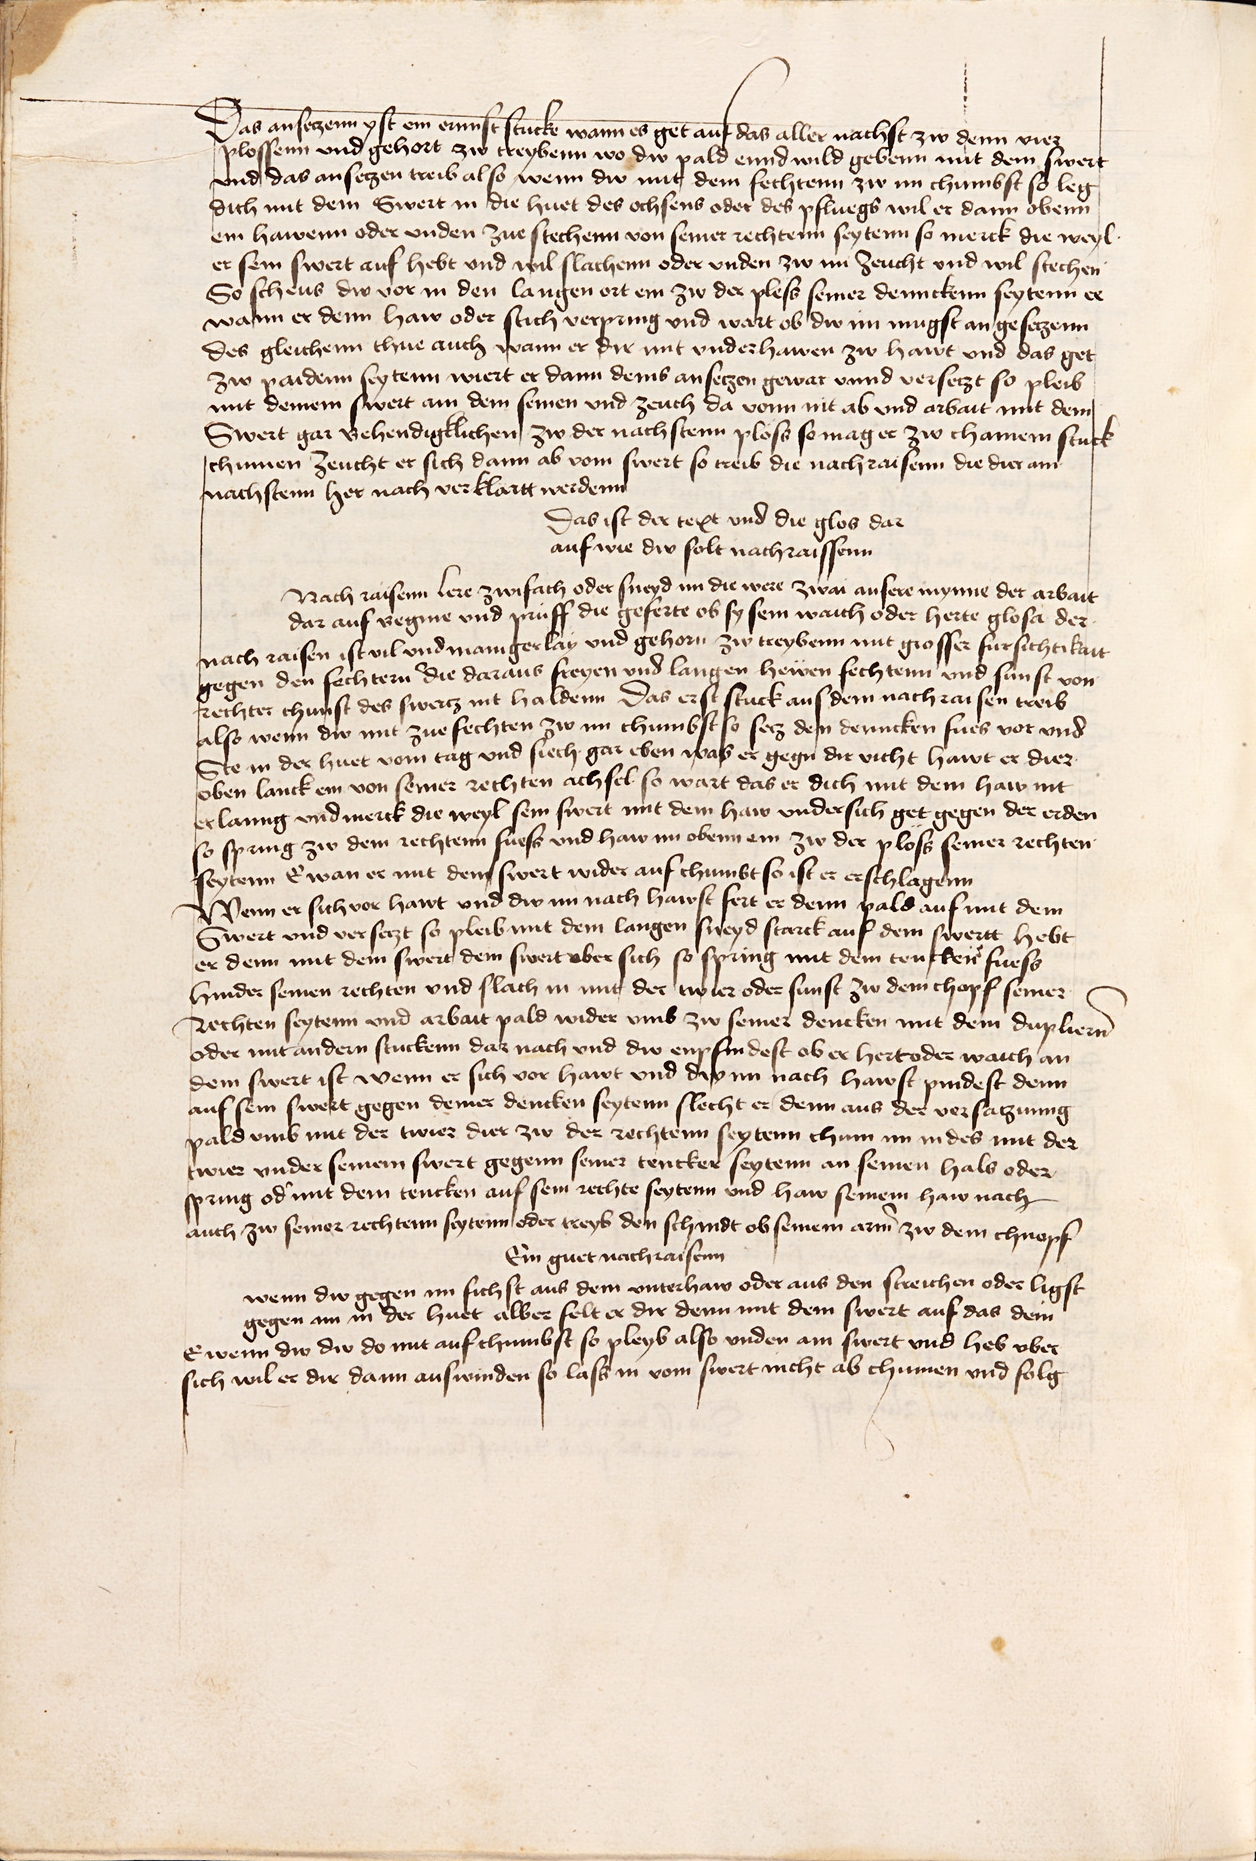 Das ansetzenn yst ein ernnst stucke wann es get auf das aller nachst zw denn vier
plossenn vnd gehort zw treybenn wo dw pald ennd wild gebenn mit dem swert
vnd das ansetzen treib also wenn dw mit dem fechtenn zw im chumbst so leg
dich mit dem Swert in die huet des ochsens oder des pfluegs wil er dann obenn
ein hawenn oder vnden zue stechenn von seiner rechtenn seytenn so merck die weyl
er sein swert auf hebt vnd wil slachenn oder vnden zw im zeucht vnd wil stechen
So scheus dw vor in den langen ort ein zw der pless seiner denncknn seytenn ee
wann er denn haw oder stich verpring vnd wart ob dw im mugst an gesetzenn
des gleichenn thue auch wann er dir mit vnderhawen zw hawt vnd das get
zw paidenn seytenn wiert er dann deins ansetzen gewar vnnd versetzt so pleib
mit deinem swert am dem seinen vnd zeuch da vonn nit ab vnd arbait mit dem
Swert gar behendigklichen zw der nachstenn plöss so mag er zw chainem stuck
chumen zeucht er sich dann ab vom swert so treib die nachraisenn die dier am
nachstenn her nach verklartt werdenn
Das ist der text vnd die glos dar
auf wie dw solt nachraissenn
Nach raisenn lere zwifach oder sneyd in die were zwai ansere mynne der arbait
dar auf begine vnd prüff die geferte ob sy sein waich oder herte glosa der
nach raisen ist vil vnd manigerlay vnd gehorn zw treybenn mit grosser fursichtikait
gegen den fechtern die daraus freyen vnd langen hewen fechtenn vnd sunst von
rechter chunst des swertz nit haldenn Das erst stuck aus dem nach raisen treib
also wenn dw mit zuefechten zw im chumbst so setz den denncken fues vor vnd
Ste in der huet vom tag vnd siech gar eben was er gegn dir vicht hawt er dier
oben lanck ein von seiner rechten achsel so wart das er dich mit dem haw nit
erlanng vnd merck die weyl sein swert mit dem haw vndersich get gegen der erden
so spring zw dem rechtenn fuess vnd haw im obenn ein zw der plöss seiner rechten
seytenn E wan er mit dem swert wider auf chumbt so ist er erschlagenn
Wenn er sich vor hawt vnd dw im nach hawst fert er denn pald auf mit dem
Swert vnd versetzt so pleib mit dem langen sneyd starck auf dem swertt hebt
er denn mit dem swert dem swert vber sich so spring mit dem tencken fuess
hinder seinen rechten vnd slach in mit der twier oder sunst zw dem chopf seiner
Rechten seytenn vnd arbait pald wider vmb zw seiner dencken mit dem dupliern
oder mit andern stuckenn dar nach vnd dw enpfindest ob er hert oder waich an
dem swert ist wenn er sich vor hawt vnd dw im nach hawst pindest denn
auf sein swert gegen deiner dencken seytenn slecht er denn aus der versatzunng
pald vmb mit der twier dier zw der rechtenn seytenn chum im in des mit der
twier vnder seinem swert gegenn seiner tencker seytenn an seinen hals oder
spring od mit dem tencken auf sein rechte seytenn vnd haw seinem haw nach
auch zw seiner rechtenn seytenn oder treyb den schnidt ob seinem arm zw dem chnopf
Ein guet nachraisenn
wenn dw gegen im fichst aus dem vnterhaw oder aus den streichen oder ligst
gegen im in der huet alber felt er dir denn mit dem swert auf das dein
E wenn dw dw do mit auf chumbst so pleyb also vnden am swert vnd heb vber
sich wil er dir dann auswinden so lass in vom swert nicht ab chumen vnd folg